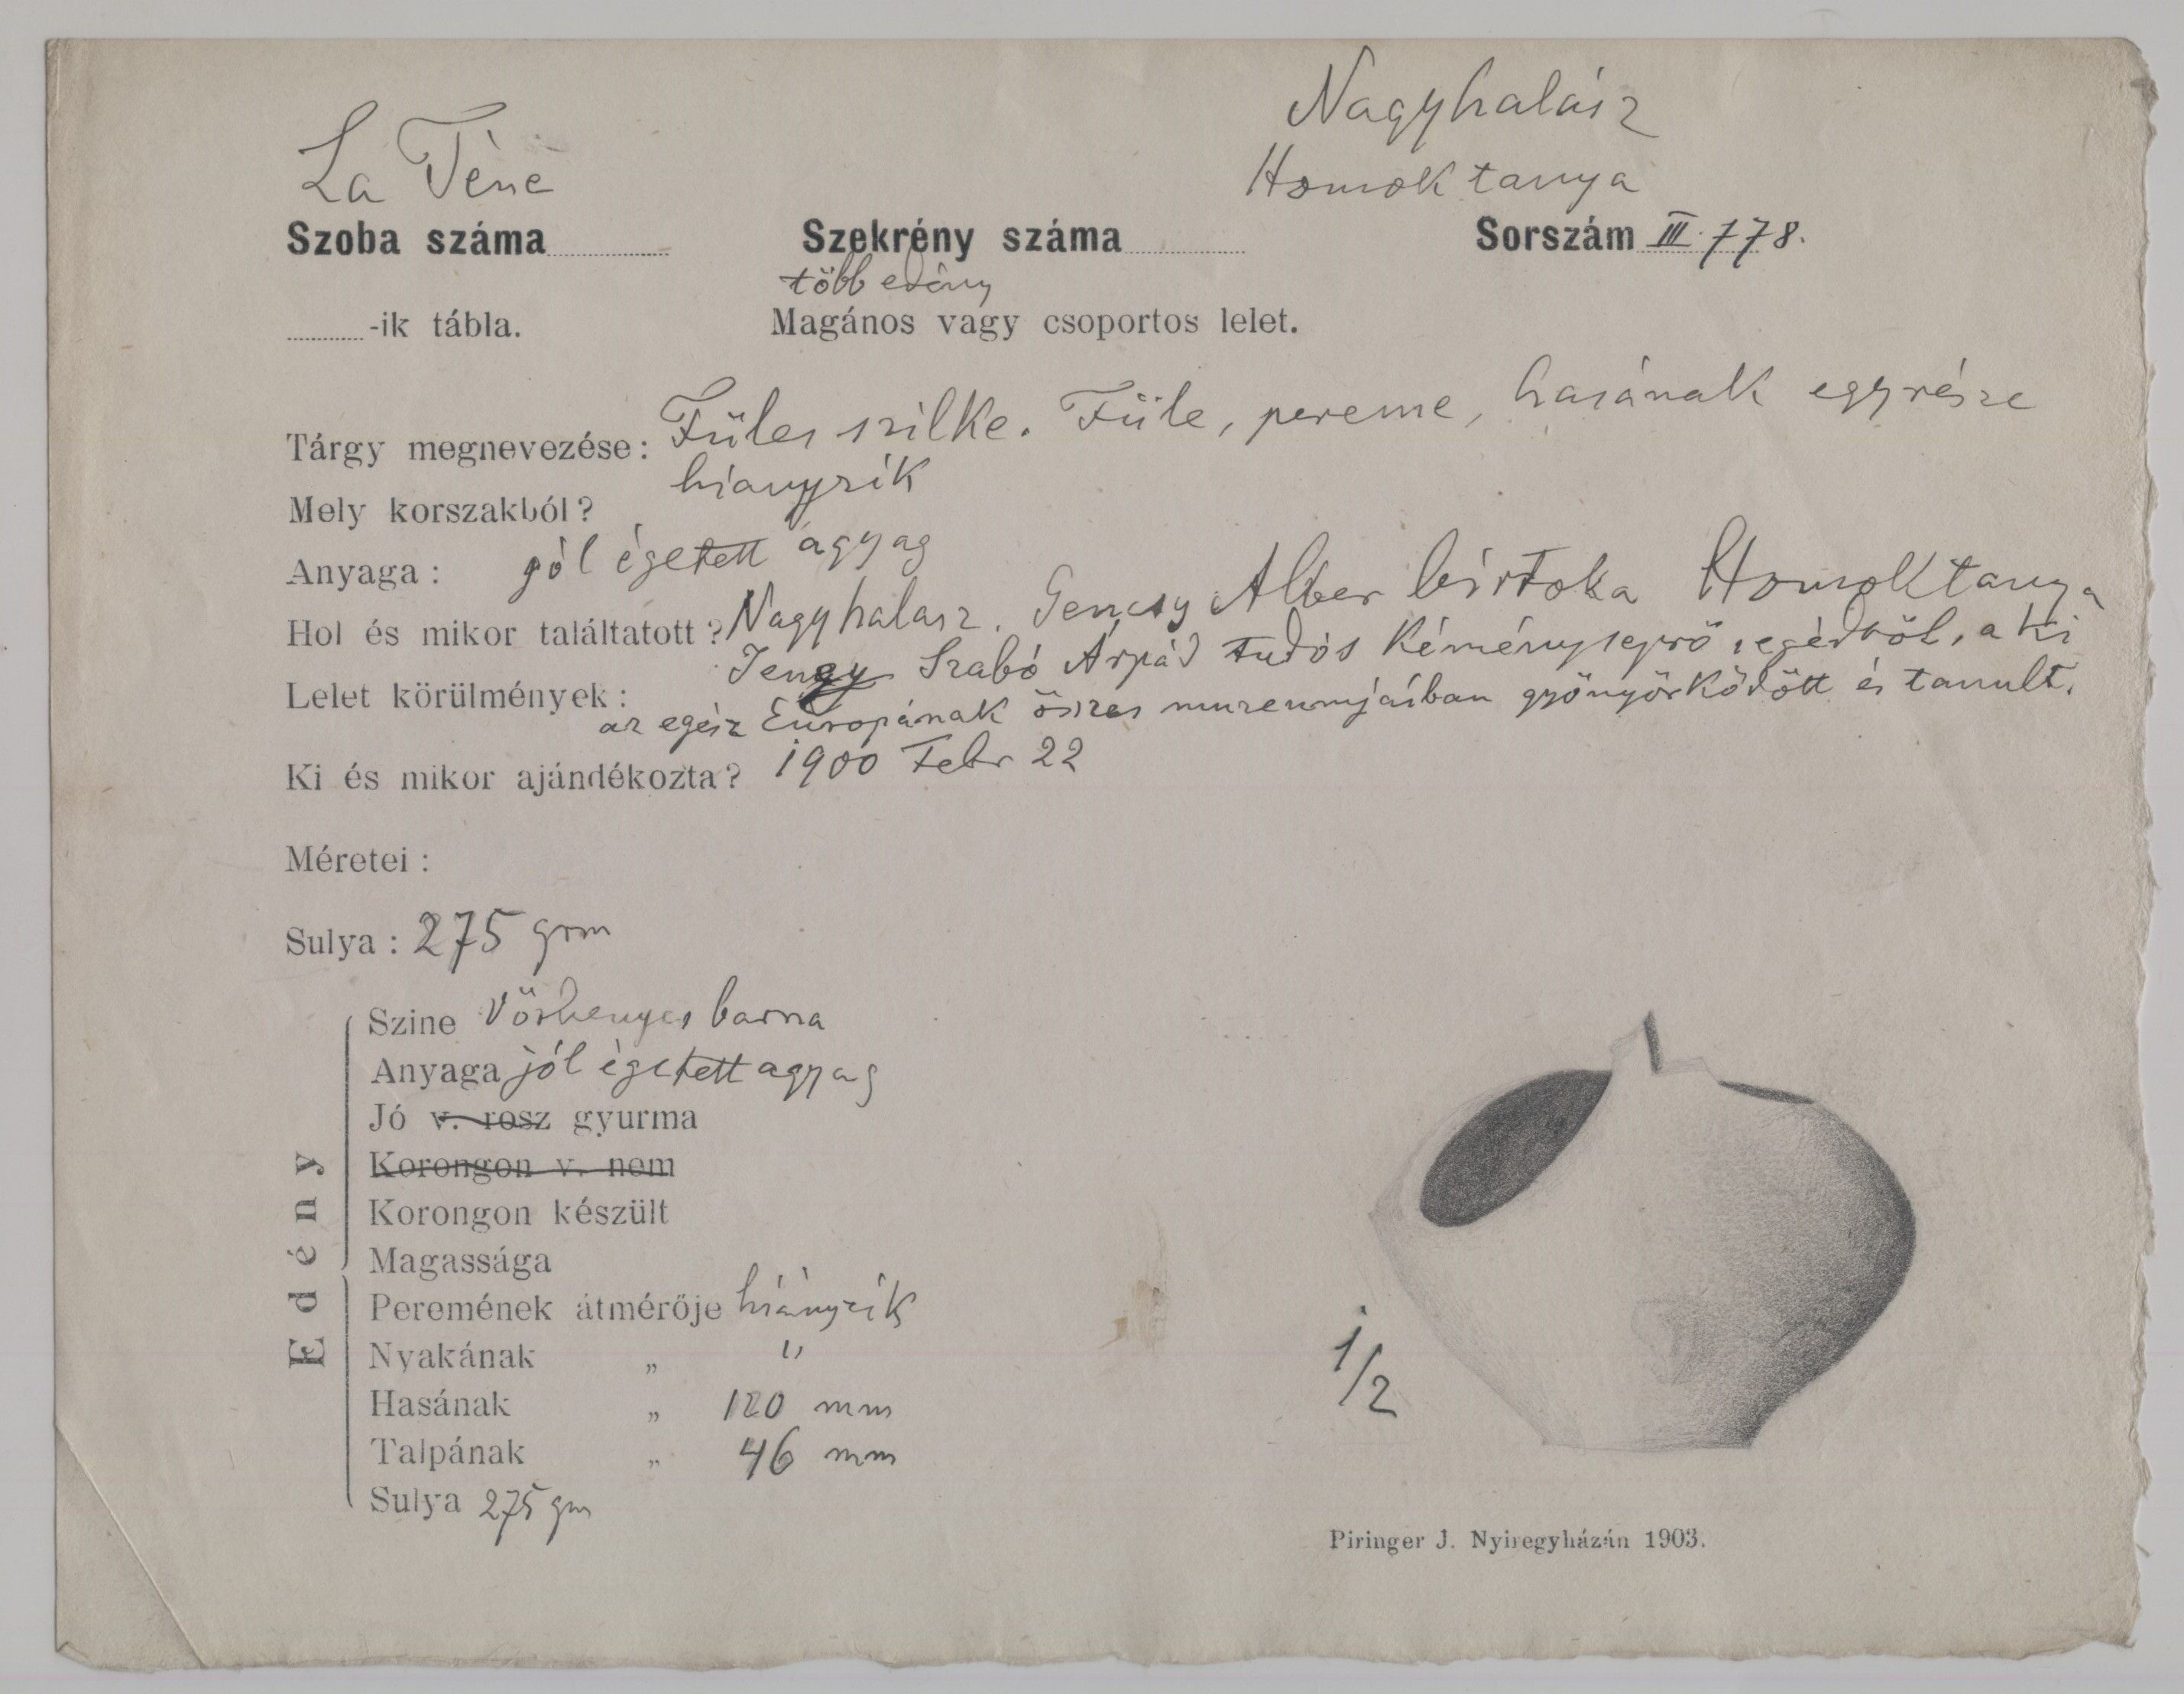 Nagyhalász
La Tène
Homok tanya
Szoba száma
Szekrény száma
Sorszám III. 778.
több edény
-ik tábla.
Magános vagy csoportos lelet.
Tárgy megnevezése: Füles szilke. Füle, pereme, hasának egyrésze
hianyzik
Mely korszakból?
Anyaga: jól égetett agyag
Hol és mikor találtatott? Nagyhalasz. Gencsy Alber birtoka Homoktanya
Szabó Árpád tudós Kéményseprő segédtől, a ki
Lelet körülmények:
az egész Európának összes muzeumjaiban gyönyörködött és tanult.
Ki és mikor ajándékozta? 1900 Febr 22
Méretei:
Sulya: 275 grm
Edény
Szine Vörhenyes barna
Anyaga jól égetett agyag
Jó v. rosz gyurma
Korongon v. nem
Korongon készült
Magassága
Peremének átmérője hiányzik
Nyakának „ "
Hasának „ 120 mm
Talpának „ 46 mm
Sulya 275 gm
1/2
Piringer J. Nyiregyházán 1903.